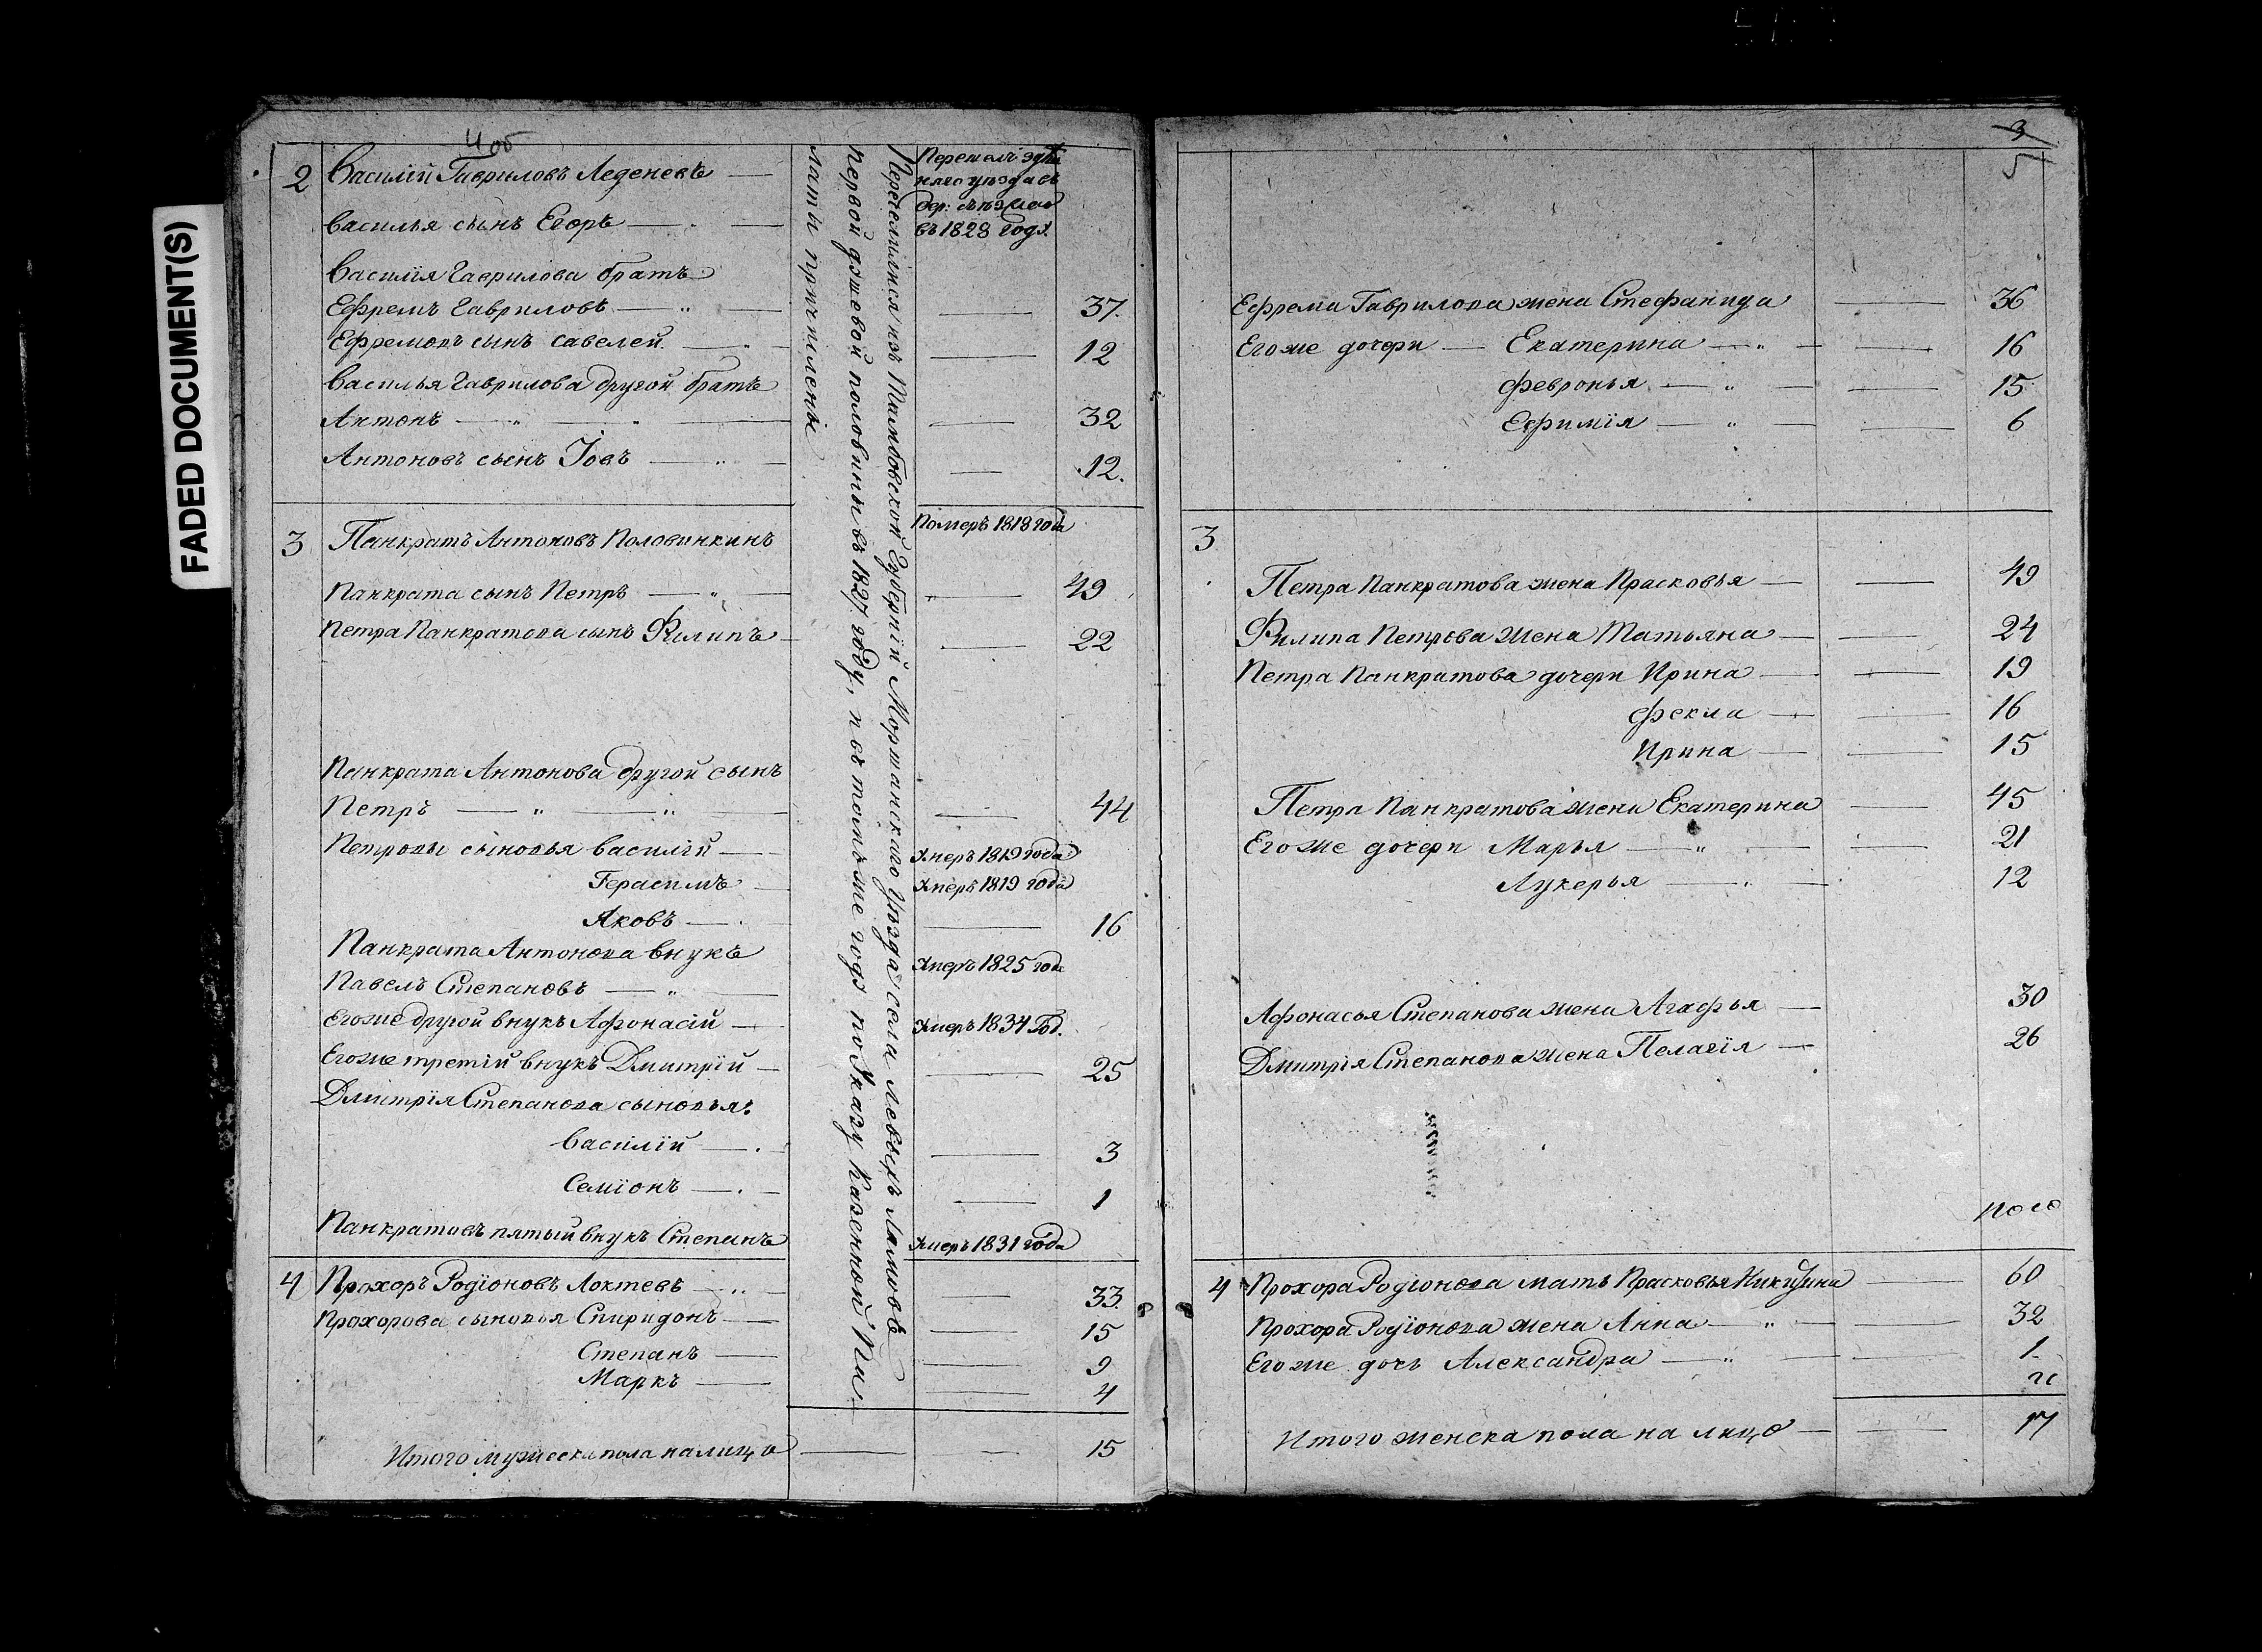 FADED DOCUMENT(S)
4 об
2 Василій Гавриловъ Леденевъ
въ 1828 годѫ
Василья сынъ Егоръ
Василія Гаврилова братъ
Ефремъ Гавриловъ — 37.
Ефремовъ сынъ Савелей — 12
Василья Гаврилова другой братъ
Антонъ — 32
Антоновъ сынъ Іовъ — 12.
3 Панкратъ Антоновъ Половинкинъ Померъ 1818 года
Панкрата сынъ Петръ — 49
Петра Панкратова сынъ Филипъ — 22
Панкрата Антонова другой сынъ
Петръ — 44
Петровы сыновья Василій — Умеръ 1819 года
Герасимъ — Умеръ 1819 года
Яковъ — 16
Панкрата Антонова внукъ
Павелъ Степановъ — Умеръ 1825 года
Егоже другой внукъ Афонасій — Умеръ 1834 Год.
Егоже третій внукъ Дмитрій — 25
Дмитрія Степанова сыновья:
Василій — 3
Семіонъ — 1
Панкратовъ пятый внукъ Степанъ Умеръ 1831 года
4 Прохоръ Родіоновъ Локтевъ — 33.
Прохорова сыновья Спиридонъ — 15
Степанъ — 9
Маркъ — 4
Итого мужеска пола налицо — 15
Переселились изъ Тамбовской Губерніи Моршанскаго Уѣзда села Левыхъ Ламовъ
первой дѫшевой половины въ 1827 году, въ томъ же годѫ по Указу Казенной Па
латы причислены
3
5
Ефрема Гаврилова жена Стефанида — 36
Егоже дочери — Екатерина — 16
Февронья — 15
Ефимія — 6
3
Петра Панкратова жена Прасковья — 49
Филипа Петрова жена Татьяна — 24
Петра Панкратова дочери Ирина — 19
Фекла — 16
Ирина — 15
Петра Панкратова жена Екатерина — 45
Егоже дочери Марья — 21
Лукерья — 12
Афонасья Степанова жена Агафья — 30
Дмитрія Степанова жена Пелагія — 26
4 Прохора Родіонова мать Прасковья Никитина — 60
Прохора Родіонова жена Анна — 32
Егоже дочь Александра — 1
Итого женска пола на лицо — 17